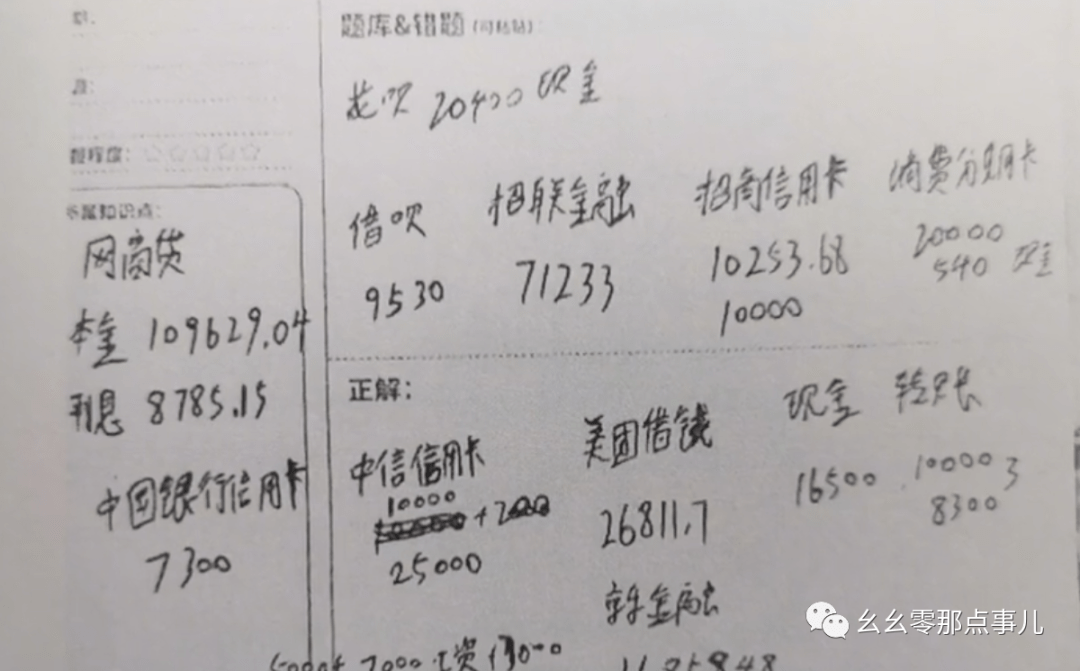 题库&错题(可粘贴):
花呗 20400 现金
借呗 招联金融 招商信用卡 消费分期卡
9530 71233 10253.68 20000
10000 540 现金
所属知识点:
网商贷
本金 109629.04
利息 8785.15
中国银行信用卡
7300
正解:
中信信用卡 美团借钱 现金 转账
10000
+2000
25000 26811.7 16500 10000
8300
京东金融
幺幺零那点事儿